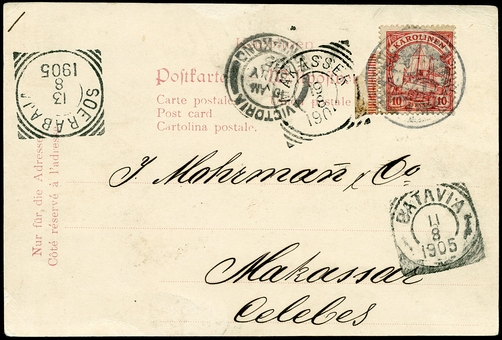 KAROLINEN
10 10
SOERABAJA
13
8
1905
VICTORIA
HONG-KONG
AM
MAKASSER
190
BATAVIA
11
8
1905
Postkarte
Carte postale
Post card.
Cartolina postale.
Nur für die Adresse
Côté réservé à l'adresse
J. Mohrmañ & Co
Makassar
Celebes